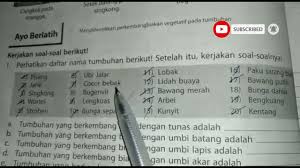 Cangkok pada
mangga.
singkong.
Mendeskripsikan perkembangbiakan vegetatif pada tumbuhan
SUBSCRIBED
Ayo Berlatih
Kerjakan soal-soal berikut!
1. Perhatikan daftar nama tumbuhan berikut! Setelah itu, kerjakan soal-soalnya.
Pisang Ubi jalar 11) Lobak 16) Paku sarang
Jahe Cocor bebek 12) Lidah buaya 17) Bawang
Singkong Bugenvil 13) Bawang merah 18) Bunga dahlia
Wortel Lengkuas 14) Arbei 19) Bengkuang
Stroberi Bunga 15) Kunyit 20) Kentang
a. Tumbuhan yang berkembang biak dengan tunas adalah
b. Tumbuhan yang berkembang biak dengan umbi batang adalah
Tumbuhan yang berkembang biak dengan umbi lapis adalah
Tumbuhan yang berkembang biak dengan umbi akar adalah